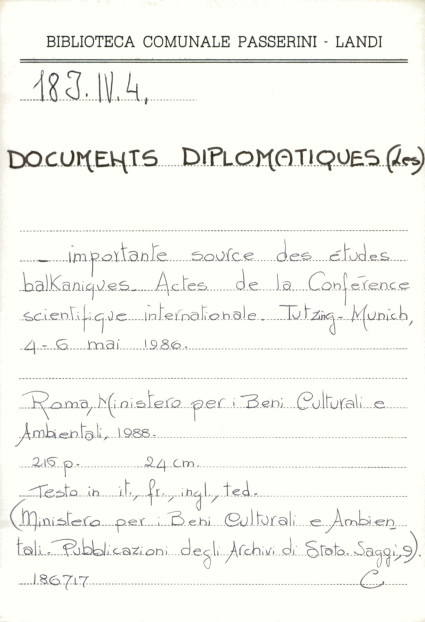 BIBLIOTECA COMUNALE PASSERINI - LANDI
18 J. IV. 4.
DOCUMENTS DIPLOMATIQUES (Les)
- importante source des études
balkaniques. Actes de la Conférence
scientifique internationale. Tutzing - Munich,
4-6 mai 1986.
Roma, Ministero per i Beni Culturali e
Ambientali, 1988.
215 p. 24 cm.
Testo in it., fr., ingl., ted.
(Ministero per i Beni Culturali e Ambien_
tali. Pubblicazioni degli Archivi di Stato. Saggi, 9).
186717 C